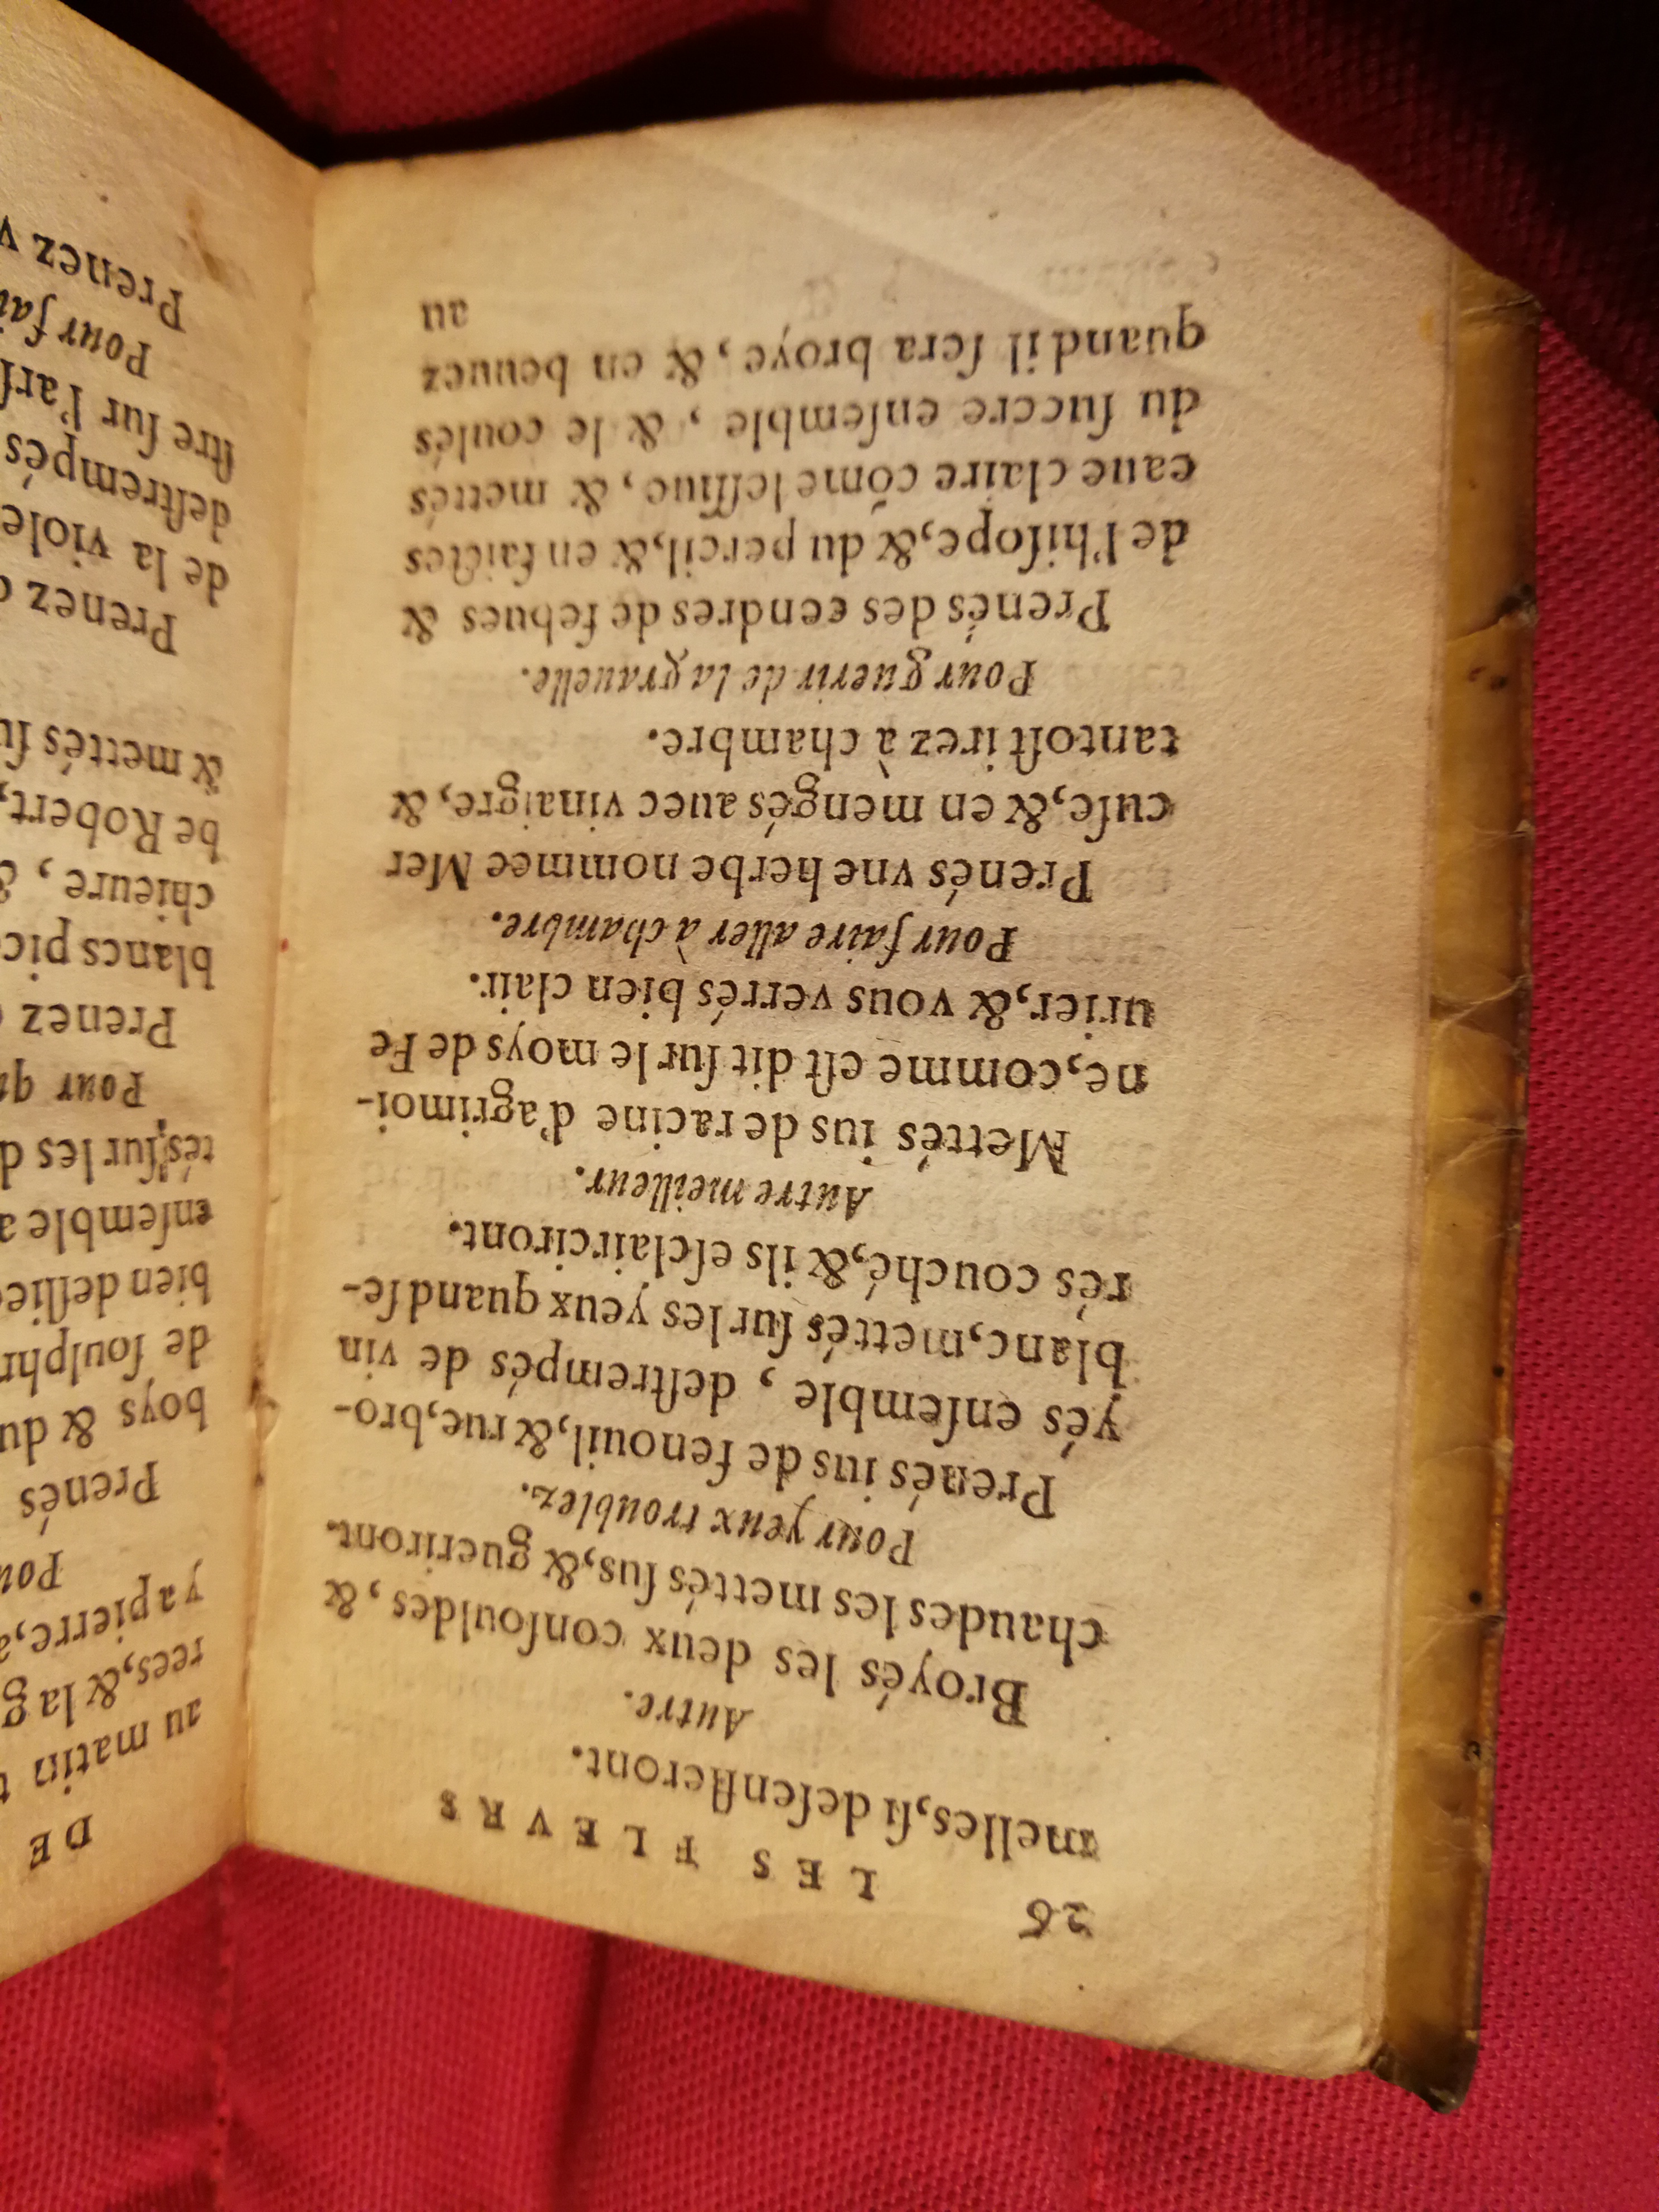 26 LES FLEVRS
melles, si desenfleront.
Autre.
Broyés les deux consouldes, &
chaudes les mettés sus, & gueriront.
Pour yeux troublez.
Prenés ius de fenouil, & rue, bro-
yés ensemble, destrempés de vin
blanc, mettés sur les yeux quand se-
rés couché, & ils esclairciront.
Autre meilleur.
Mettés ius de racine d'agrimoi-
ne, comme est dit sur le moys de Fe
urier, & vous verrés bien clair.
Pour faire aller à chambre.
Prenés vne herbe nommee Mer
cuse, & en mengés auec vinaigre, &
tantost irez à chambre.
Pour guerir de la grauelle.
Prenés des cendres de febues &
de l'hisope, & du percil, & en faictes
eaue claire cóme lessiue, & mettés
du succre ensemble, & le coulés
quand il sera broye, & en beuuez
au
DE
au matin
rees, & la g
y a pierre, a
Pou
Prenés
boys & du
de soulphr
bien deslie
ensemble a
tés, sur les d
Pour qu
Prenez
blancs pic
chieure, &
be Robert,
& mettés su
Prenez
de la viole
destrempés
stre sur l'ars
Pour fai
Prenez v